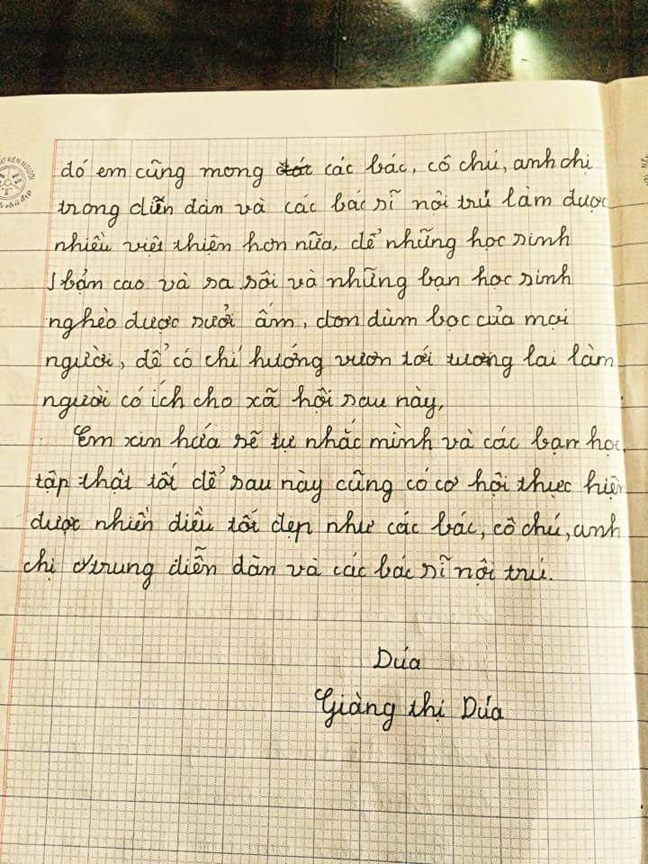 đó em cũng mong các bác, cô chú, anh chị
trong diễn đàn và các bác sĩ nôi trú làm được
nhiều việt thiện hơn nữa, để những học sinh
bản cao và sa sôi và những bạn học sinh
nghèo được sưởi ấm, đon dùm bọc của mọi
người, để có chí hướng vươn tới tương lai làm
người có ích cho xã hội sau này,
Em xin hứa sẽ tự nhắc mình và các bạn học
tập thật tốt để sau này cũng có cơ hội thực hiện
được nhiền điều tốt đẹp như các bác, cô chú, anh
chị ở trung diễn đàn và các bác sĩ nội trú.
Dúa
Giàng thị Dúa